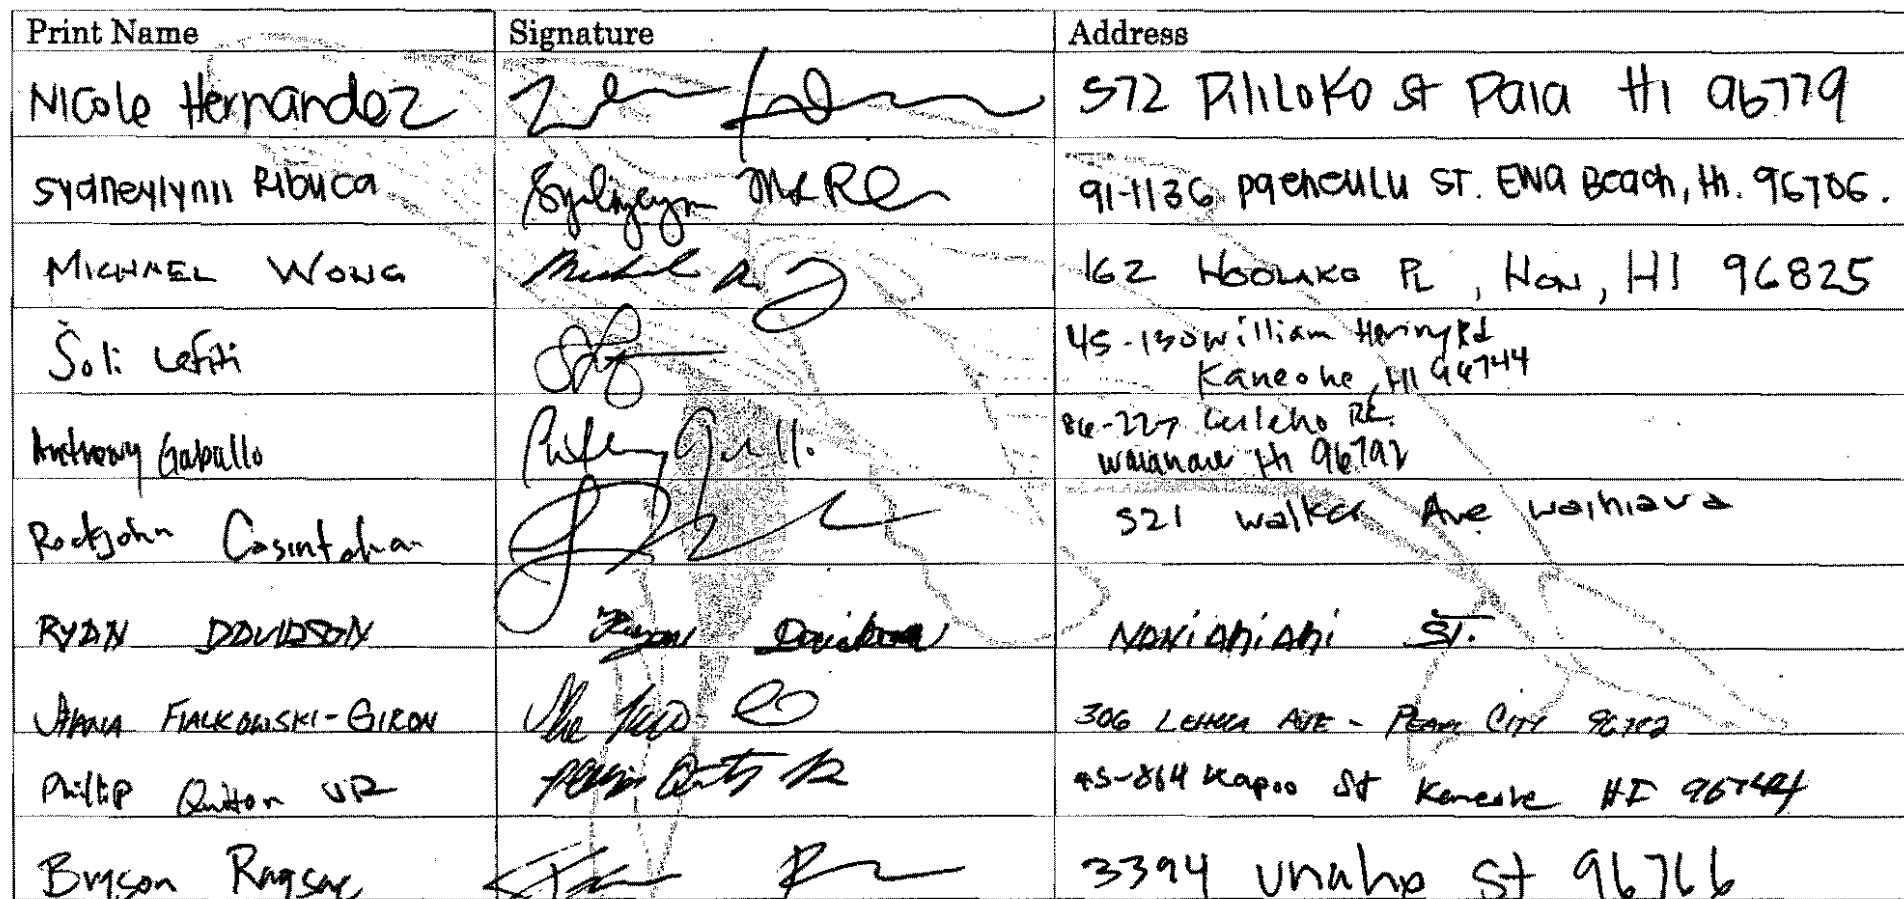 Print Name Signature Address
Nicole Hernandez 572 Pililoko St Paia HI 96779
Sydneylynn Ribuca 91-1136 Paeheulu ST. Ewa Beach, HI. 96706.
MICHAEL WONG 162 HOOLAKO PL, HON, HI 96825
Soli Lefiti 45-130 William Henry Rd
Kaneohe, HI 96744
Anthony Gaballo 86-227 Rd.
Waianae HI 96792
Rockjohn Casintahan 521 Walker Ave Wahiawa
RYAN DAVIDSON Ryan Davidson NANIAHIAHI ST.
FIALKOWSKI-GIRON 306 LEHUA AVE - PEARL CITY 96782
Phillip Quitton JR 45-864 Kapoo St Kaneohe HI 96744
Bryson Ragsac 3394 Unaho St 96766